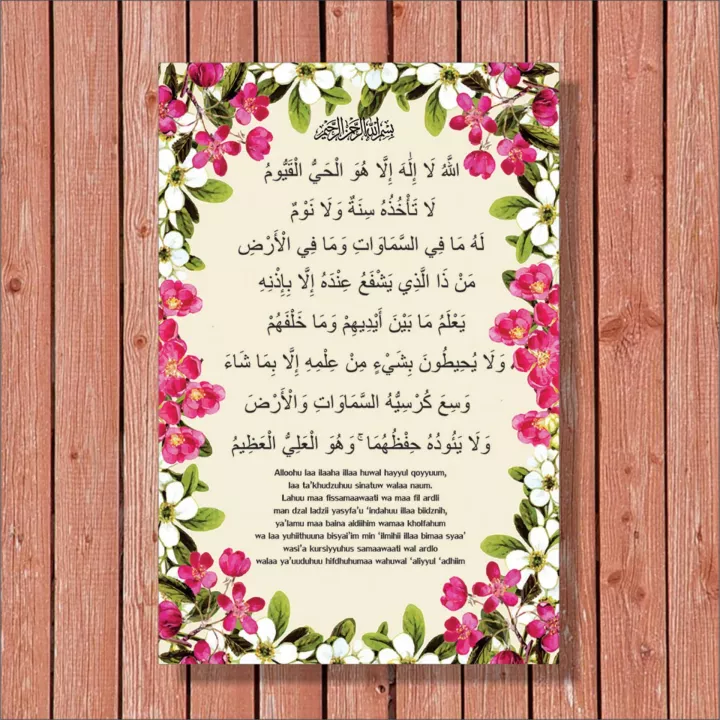 بسم الله الرحمن الرحيم
اللَّهُ لَا إِلَٰهَ إِلَّا هُوَ الْحَيُّ الْقَيُّومُ
لَا تَأْخُذُهُ سِنَةٌ وَلَا نَوْمٌ
لَهُ مَا فِي السَّمَاوَاتِ وَمَا فِي الْأَرْضِ
مَنْ ذَا الَّذِي يَشْفَعُ عِنْدَهُ إِلَّا بِإِذْنِهِ
يَعْلَمُ مَا بَيْنَ أَيْدِيهِمْ وَمَا خَلْفَهُمْ
وَلَا يُحِيطُونَ بِشَيْءٍ مِنْ عِلْمِهِ إِلَّا بِمَا شَاءَ
وَسِعَ كُرْسِيُّهُ السَّمَاوَاتِ وَالْأَرْضَ
وَلَا يَئُودُهُ حِفْظُهُمَا ۚ وَهُوَ الْعَلِيُّ الْعَظِيمُ
Alloohu laa ilaaha illaa huwal hayyul qoyyuum,
laa ta'khudzuhuu sinatuw walaa naum.
Lahuu maa fissamaawaati wa maa fil ardli
man dzal ladzii yasyfa'u 'indahuu illaa biidznih,
ya'lamu maa baina aidiihim wamaa kholfahum
wa laa yuhiithuuna bisyai'im min 'ilmihii illaa bimaa syaa'
wasi'a kursiyyuhus samaawaati wal ardlo
walaa ya'uuduhuu hifdhuhumaa wahuwal 'aliyyul 'adhiim